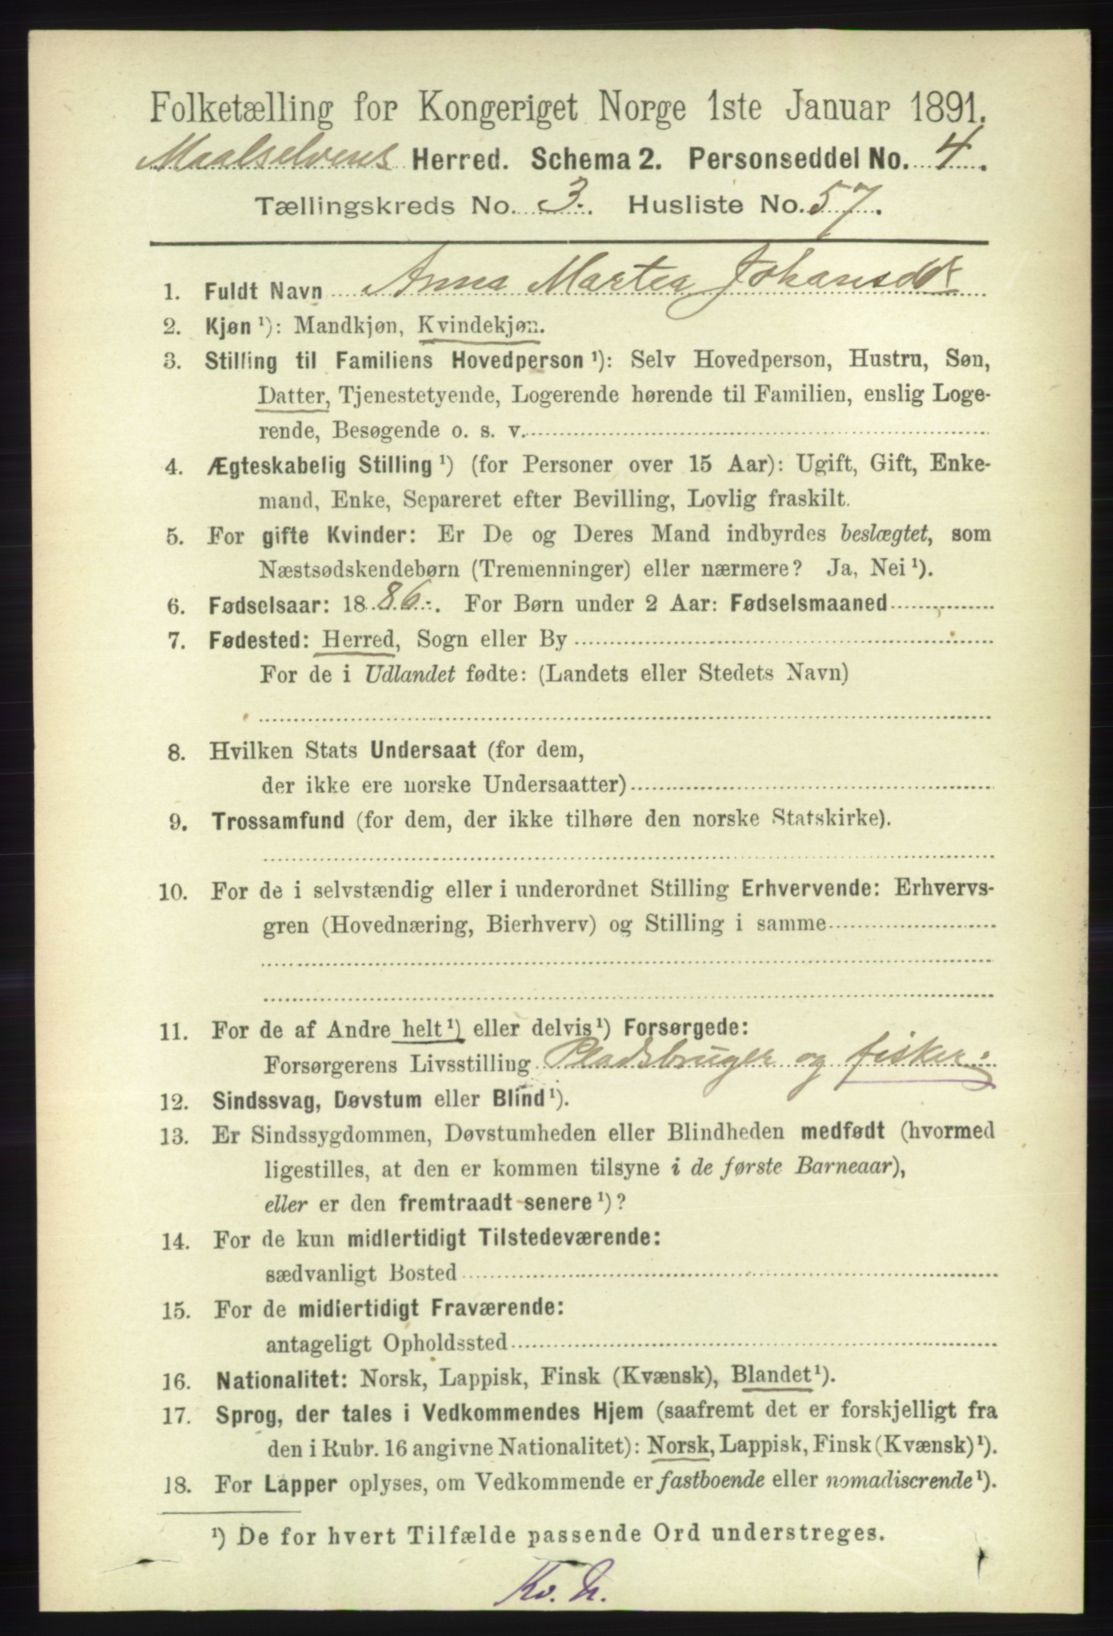 Folketælling for Kongeriget Norge 1ste Januar 1891.
Maalselvens Herred. Schema 2. Personseddel No. 4.
Tællingskreds No. 3. Husliste No. 57.
1. Fuldt Navn Anna Martea Johansdtr
2. Kjøn ¹): Mandkjøn, Kvindekjøn.
3. Stilling til Familiens Hovedperson ¹): Selv Hovedperson, Hustru, Søn,
Datter, Tjenestetyende, Logerende hørende til Familien, enslig Loge-
rende, Besøgende o. s. v.
4. Ægteskabelig Stilling ¹) (for Personer over 15 Aar): Ugift, Gift, Enke-
mand, Enke, Separeret efter Bevilling, Lovlig fraskilt.
5. For gifte Kvinder: Er De og Deres Mand indbyrdes beslægtet, som
Næstsødskendebørn (Tremenninger) eller nærmere? Ja, Nei ¹).
6. Fødselsaar: 1886. For Børn under 2 Aar: Fødselsmaaned
7. Fødested: Herred, Sogn eller By
For de i Udlandet fødte: (Landets eller Stedets Navn)
8. Hvilken Stats Undersaat (for dem,
der ikke ere norske Undersaatter)
9. Trossamfund (for dem, der ikke tilhøre den norske Statskirke).
10. For de i selvstændig eller i underordnet Stilling Erhvervende: Erhvervs-
gren (Hovednæring, Bierhverv) og Stilling i samme
11. For de af Andre helt ¹) eller delvis ¹) Forsørgede:
Forsørgerens Livsstilling Pladsbruger og fisker.
12. Sindssvag, Døvstum eller Blind ¹).
13. Er Sindssygdommen, Døvstumheden eller Blindheden medfødt (hvormed
ligestilles, at den er kommen tilsyne i de første Barneaar),
eller er den fremtraadt senere ¹)?
14. For de kun midlertidigt Tilstedeværende:
sædvanligt Bosted
15. For de midlertidigt Fraværende:
antageligt Opholdssted
16. Nationalitet: Norsk, Lappisk, Finsk (Kvænsk), Blandet ¹).
17. Sprog, der tales i Vedkommendes Hjem (saafremt det er forskjelligt fra
den i Rubr. 16 angivne Nationalitet): Norsk, Lappisk, Finsk (Kvænsk) ¹).
18. For Lapper oplyses, om Vedkommende er fastboende eller nomadiserende ¹).
¹) De for hvert Tilfælde passende Ord understreges.
Kv. h.